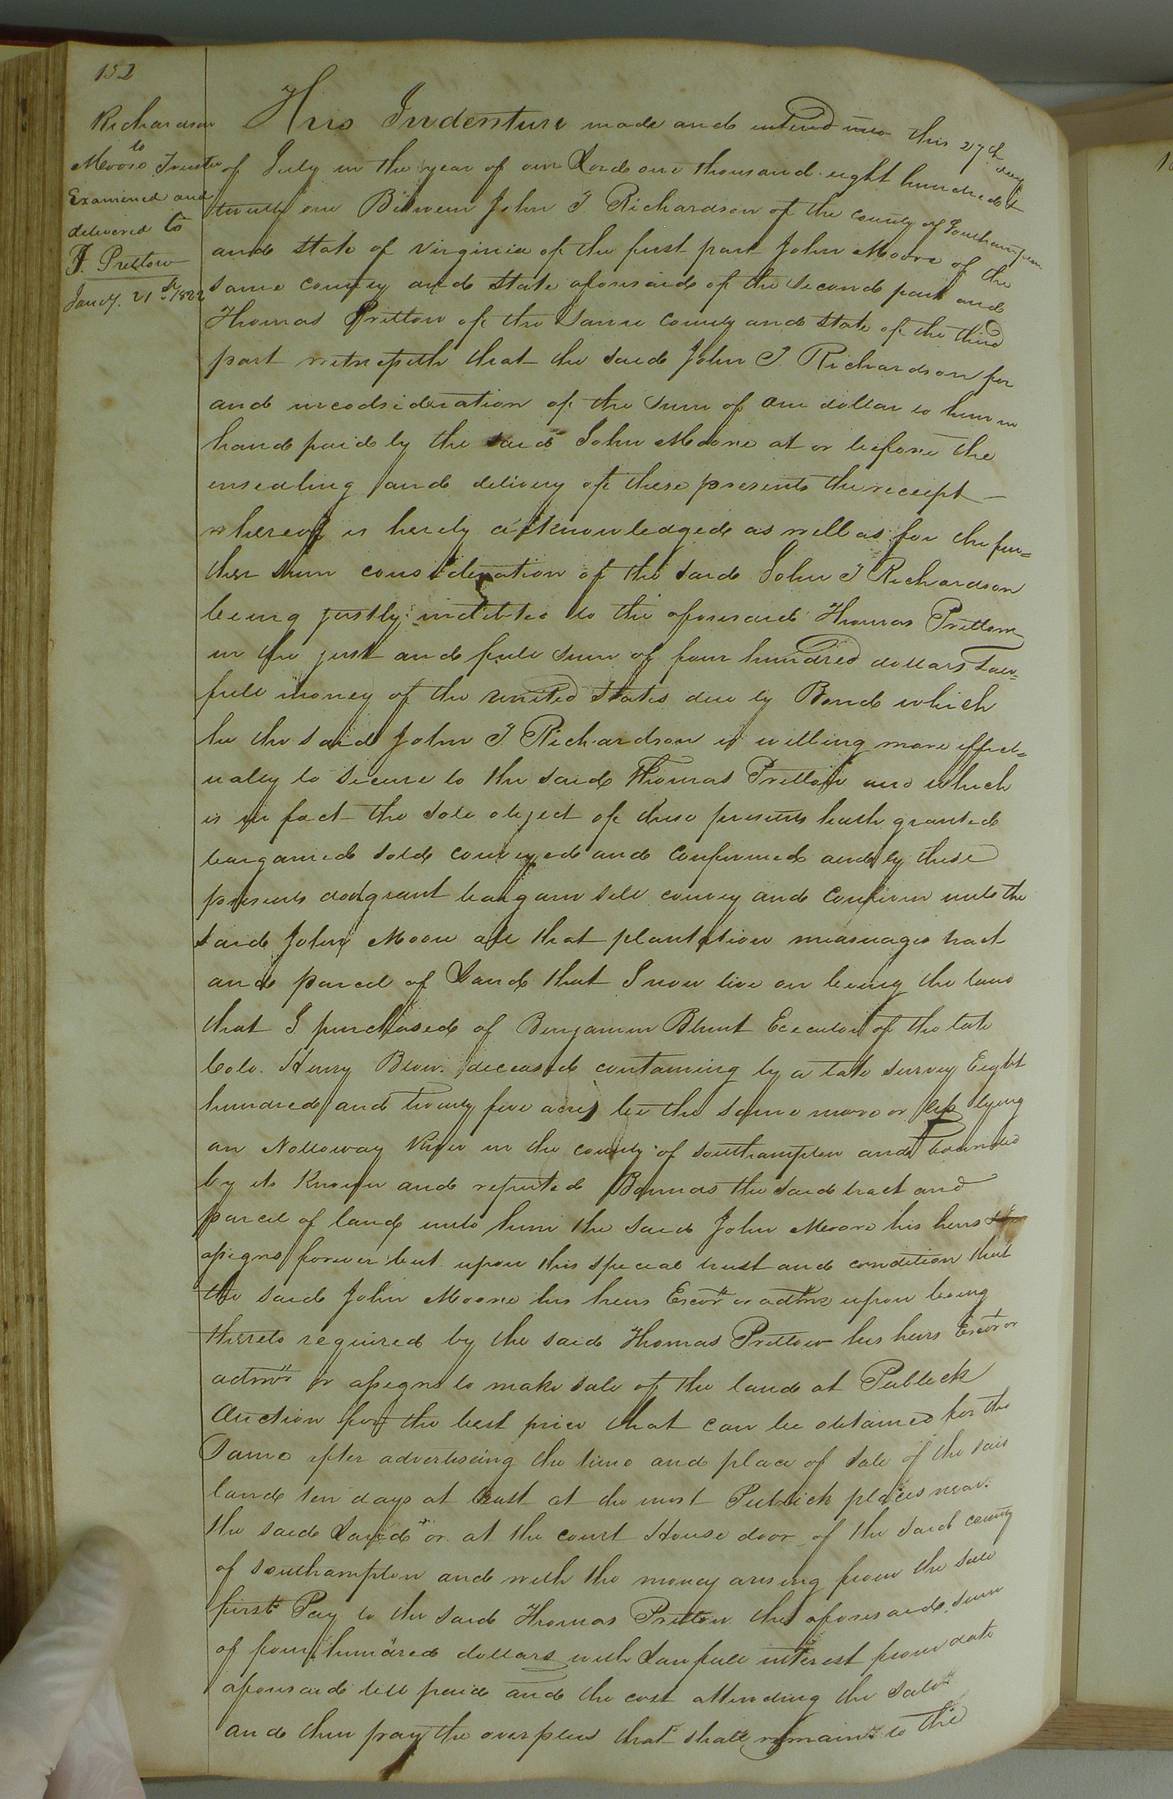 152
Richardson
to
Moore Trustee
Examined and
delivered to
T. Pretlow
Jany. 21st 1822
This Indenture made and entered into this 27th day
of July in the year of our Lord one thousand eight hundred &
twenty one Between John T Richardson of the county of Southampton
and state of Virginia of the first part John Moore of the
same county and state aforesaid of the second part and
Thomas Pretlow of the same county and state of the third
part witnesseth that the said John T. Richardson for
and inconsideration of the sum of one dollar to him in
hand paid by the said John Moore at or before the
ensealing and delivery of these presents the receipt
whereof is hereby acknowledged as well as for the fur=
ther sum consideration of the said John T Richardson
being justly indebted to the aforesaid Thomas Pretlow
in the just and full sum of four hundred dollars Law=
full money of the united States due by Bond which
he the said John T Richardson is willing more effect=
ually to secure to the said Thomas Pretlow and which
is in fact the sole object of these presents hath granted
bargained sold conveyed and confirmed and by these
presents doth grant bargain sell convey and confirm unto the
said John Moore all that plantation messuages tract
and parcel of Land that I now live on being the land
that I purchased of Benjamin Blunt Executor of the late
Colo. Henry Blow deceased containing by a late survey Eight
hundred and twenty five acres be the same more or less lying
on Nottoway River in the county of Southampton and bounded
by its known and reputed Bounds the said tract and
parcel of land unto him the said John Moore his heirs
assigns forever but upon this special trust and condition that
the said John Moore his heirs Exors or admrs upon being
thereto required by the said Thomas Pretlow his heirs Exors or
admrs or assigns to make sale of the land at Publick
Auction for the best price that can be obtained for the
Same after advertising the time and place of sale of the said
land ten days at least at the most Publick places near
the said Land or at the court House door of the said county
of Southampton and with the money arising from the sale
first Pay to the said Thomas Pretlow the aforesaid sum
of four hundred dollars with Lawfull interest from date
aforesaid till paid and the cost attending the sale
and then pay the overplus that shall remain to the